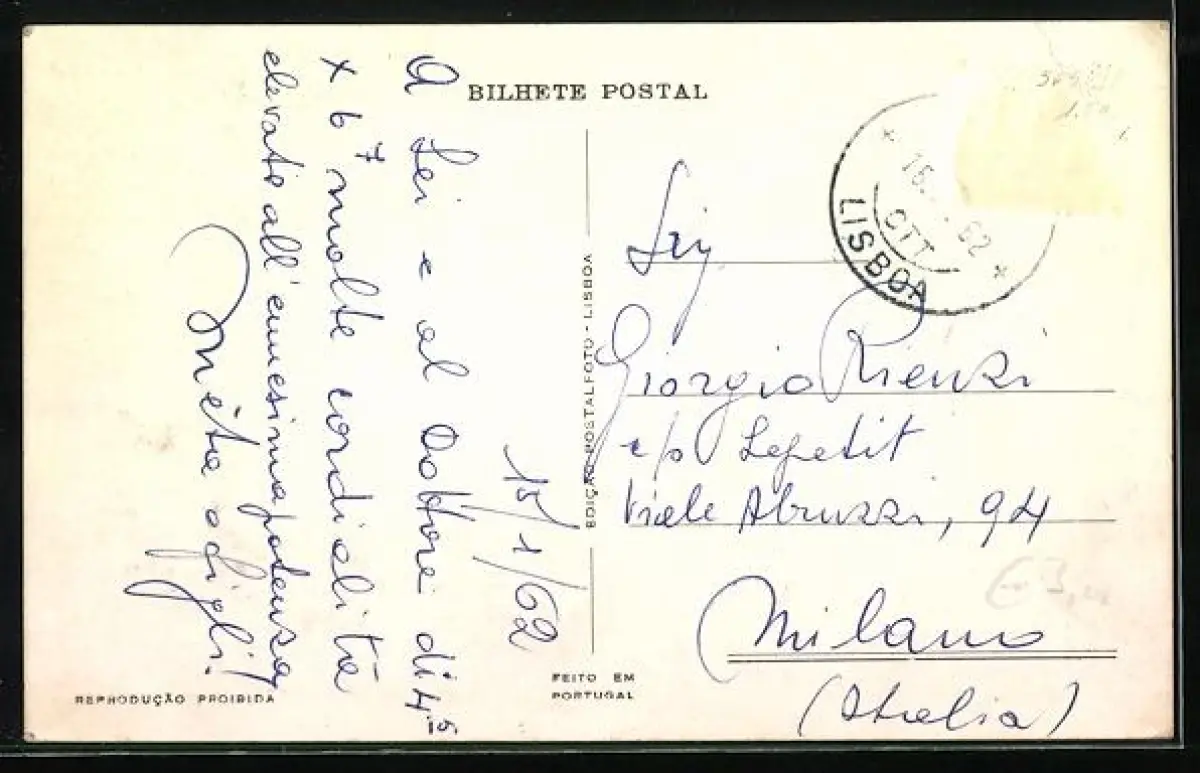 BILHETE POSTAL
15/1/62
A Lei e al Dottore di 4⁵
x 6⁷ molte cordialità
elevate all'ennesima potenza,
e figli!
EDIÇÃO POSTALFOTO - LISBOA
FEITO EM
PORTUGAL
REPRODUÇÃO PROIBIDA
LISBOA
CTT
62
Sig
Giorgio Rienzi
c/o Lepetit
Viale Abruzzi, 94
Milano
(Italia)